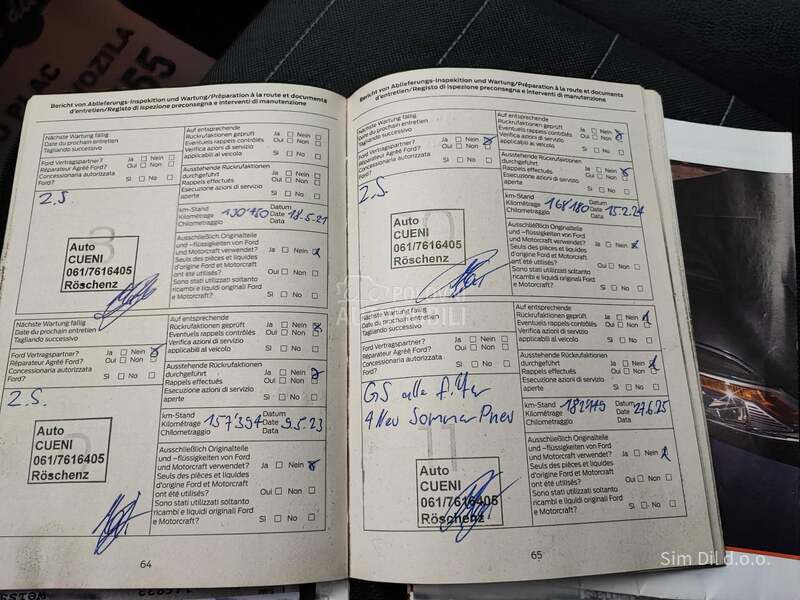 Bericht von Ablieferungs-Inspekition und Wartung/Préparation à la route et documents
d'entretien/Registo di ispezione preconsegna e interventi di manutenzione
Nächste Wartung fällig
Date du prochain entretien
Tagliando successivo
Auf entsprechende
Rückrufaktionen geprüft Ja Nein
Eventuels rappels contrôlés Oui Non
Verifica azioni di servizio
applicabili al veicolo Sì No
Ford Vertragspartner? Ja Nein
Réparateur Agréé Ford? Oui Non
Concessionaria autorizzata
Ford? Sì No
Ausstehende Rückrufaktionen
durchgeführt Ja Nein
Rappels effectués Oui Non
Esecuzione azioni di servizio
aperte Sì No
Z.S.
km-Stand Datum
Kilométrage 130'180 Date 18.5.21
Chilometraggio Data
3
Auto
CUENI
061/7616405
Röschenz
Ausschließlich Originalteile
und –flüssigkeiten von Ford
und Motorcraft verwendet? Ja Nein
Seuls des pièces et liquides
d'origine Ford et Motorcraft
ont été utilisés? Oui Non
Sono stati utilizzati soltanto
ricambi e liquidi originali Ford
e Motorcraft? Sì No
Nächste Wartung fällig
Date du prochain entretien
Tagliando successivo
Auf entsprechende
Rückrufaktionen geprüft Ja Nein
Eventuels rappels contrôlés Oui Non
Verifica azioni di servizio
applicabili al veicolo Sì No
Ford Vertragspartner? Ja Nein
Réparateur Agréé Ford? Oui Non
Concessionaria autorizzata
Ford? Sì No
Ausstehende Rückrufaktionen
durchgeführt Ja Nein
Rappels effectués Oui Non
Esecuzione azioni di servizio
aperte Sì No
Z.S.
km-Stand Datum
Kilométrage 157'394 Date 9.5.23
Chilometraggio Data
Auto
CUENI
061/7616405
Röschenz
Ausschließlich Originalteile
und –flüssigkeiten von Ford
und Motorcraft verwendet? Ja Nein
Seuls des pièces et liquides
d'origine Ford et Motorcraft
ont été utilisés? Oui Non
Sono stati utilizzati soltanto
ricambi e liquidi originali Ford
e Motorcraft? Sì No
64
Bericht von Ablieferungs-Inspekition und Wartung/Préparation à la route et documents
d'entretien/Registo di ispezione preconsegna e interventi di manutenzione
Nächste Wartung fällig
Date du prochain entretien
Tagliando successivo
Auf entsprechende
Rückrufaktionen geprüft Ja Nein
Eventuels rappels contrôlés Oui Non
Verifica azioni di servizio
applicabili al veicolo Sì No
Ford Vertragspartner? Ja Nein
Réparateur Agréé Ford? Oui Non
Concessionaria autorizzata
Ford? Sì No
Ausstehende Rückrufaktionen
durchgeführt Ja Nein
Rappels effectués Oui Non
Esecuzione azioni di servizio
aperte Sì No
Z.S.
km-Stand Datum
Kilométrage 168180 Date 15.2.24
Chilometraggio Data
Auto
CUENI
061/7616405
Röschenz
Ausschließlich Originalteile
und –flüssigkeiten von Ford
und Motorcraft verwendet? Ja Nein
Seuls des pièces et liquides
d'origine Ford et Motorcraft
ont été utilisés? Oui Non
Sono stati utilizzati soltanto
ricambi e liquidi originali Ford
e Motorcraft? Sì No
Nächste Wartung fällig
Date du prochain entretien
Tagliando successivo
Auf entsprechende
Rückrufaktionen geprüft Ja Nein
Eventuels rappels contrôlés Oui Non
Verifica azioni di servizio
applicabili al veicolo Sì No
Ford Vertragspartner? Ja Nein
Réparateur Agréé Ford? Oui Non
Concessionaria autorizzata
Ford? Sì No
Ausstehende Rückrufaktionen
durchgeführt Ja Nein
Rappels effectués Oui Non
Esecuzione azioni di servizio
aperte Sì No
GS alle Filter
4 Neu Sommer Pneu
km-Stand Datum
Kilométrage Date 27.6.25
Chilometraggio Data
11
Auto
CUENI
061/7616405
Röschenz
Ausschließlich Originalteile
und –flüssigkeiten von Ford
und Motorcraft verwendet? Ja Nein
Seuls des pièces et liquides
d'origine Ford et Motorcraft
ont été utilisés? Oui Non
Sono stati utilizzati soltanto
ricambi e liquidi originali Ford
e Motorcraft? Sì No
65
Sim Dil d.o.o.